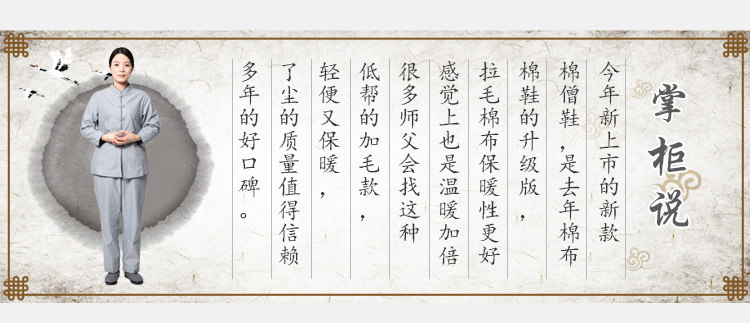 掌柜说
今年新上市的新款
棉僧鞋，是去年棉布
棉鞋的升级版，
拉毛棉布保暖性更好
感觉上也是温暖加倍
很多师父会找这种
低帮的加毛款，
轻便又保暖，
了尘的质量值得信赖
多年的好口碑。